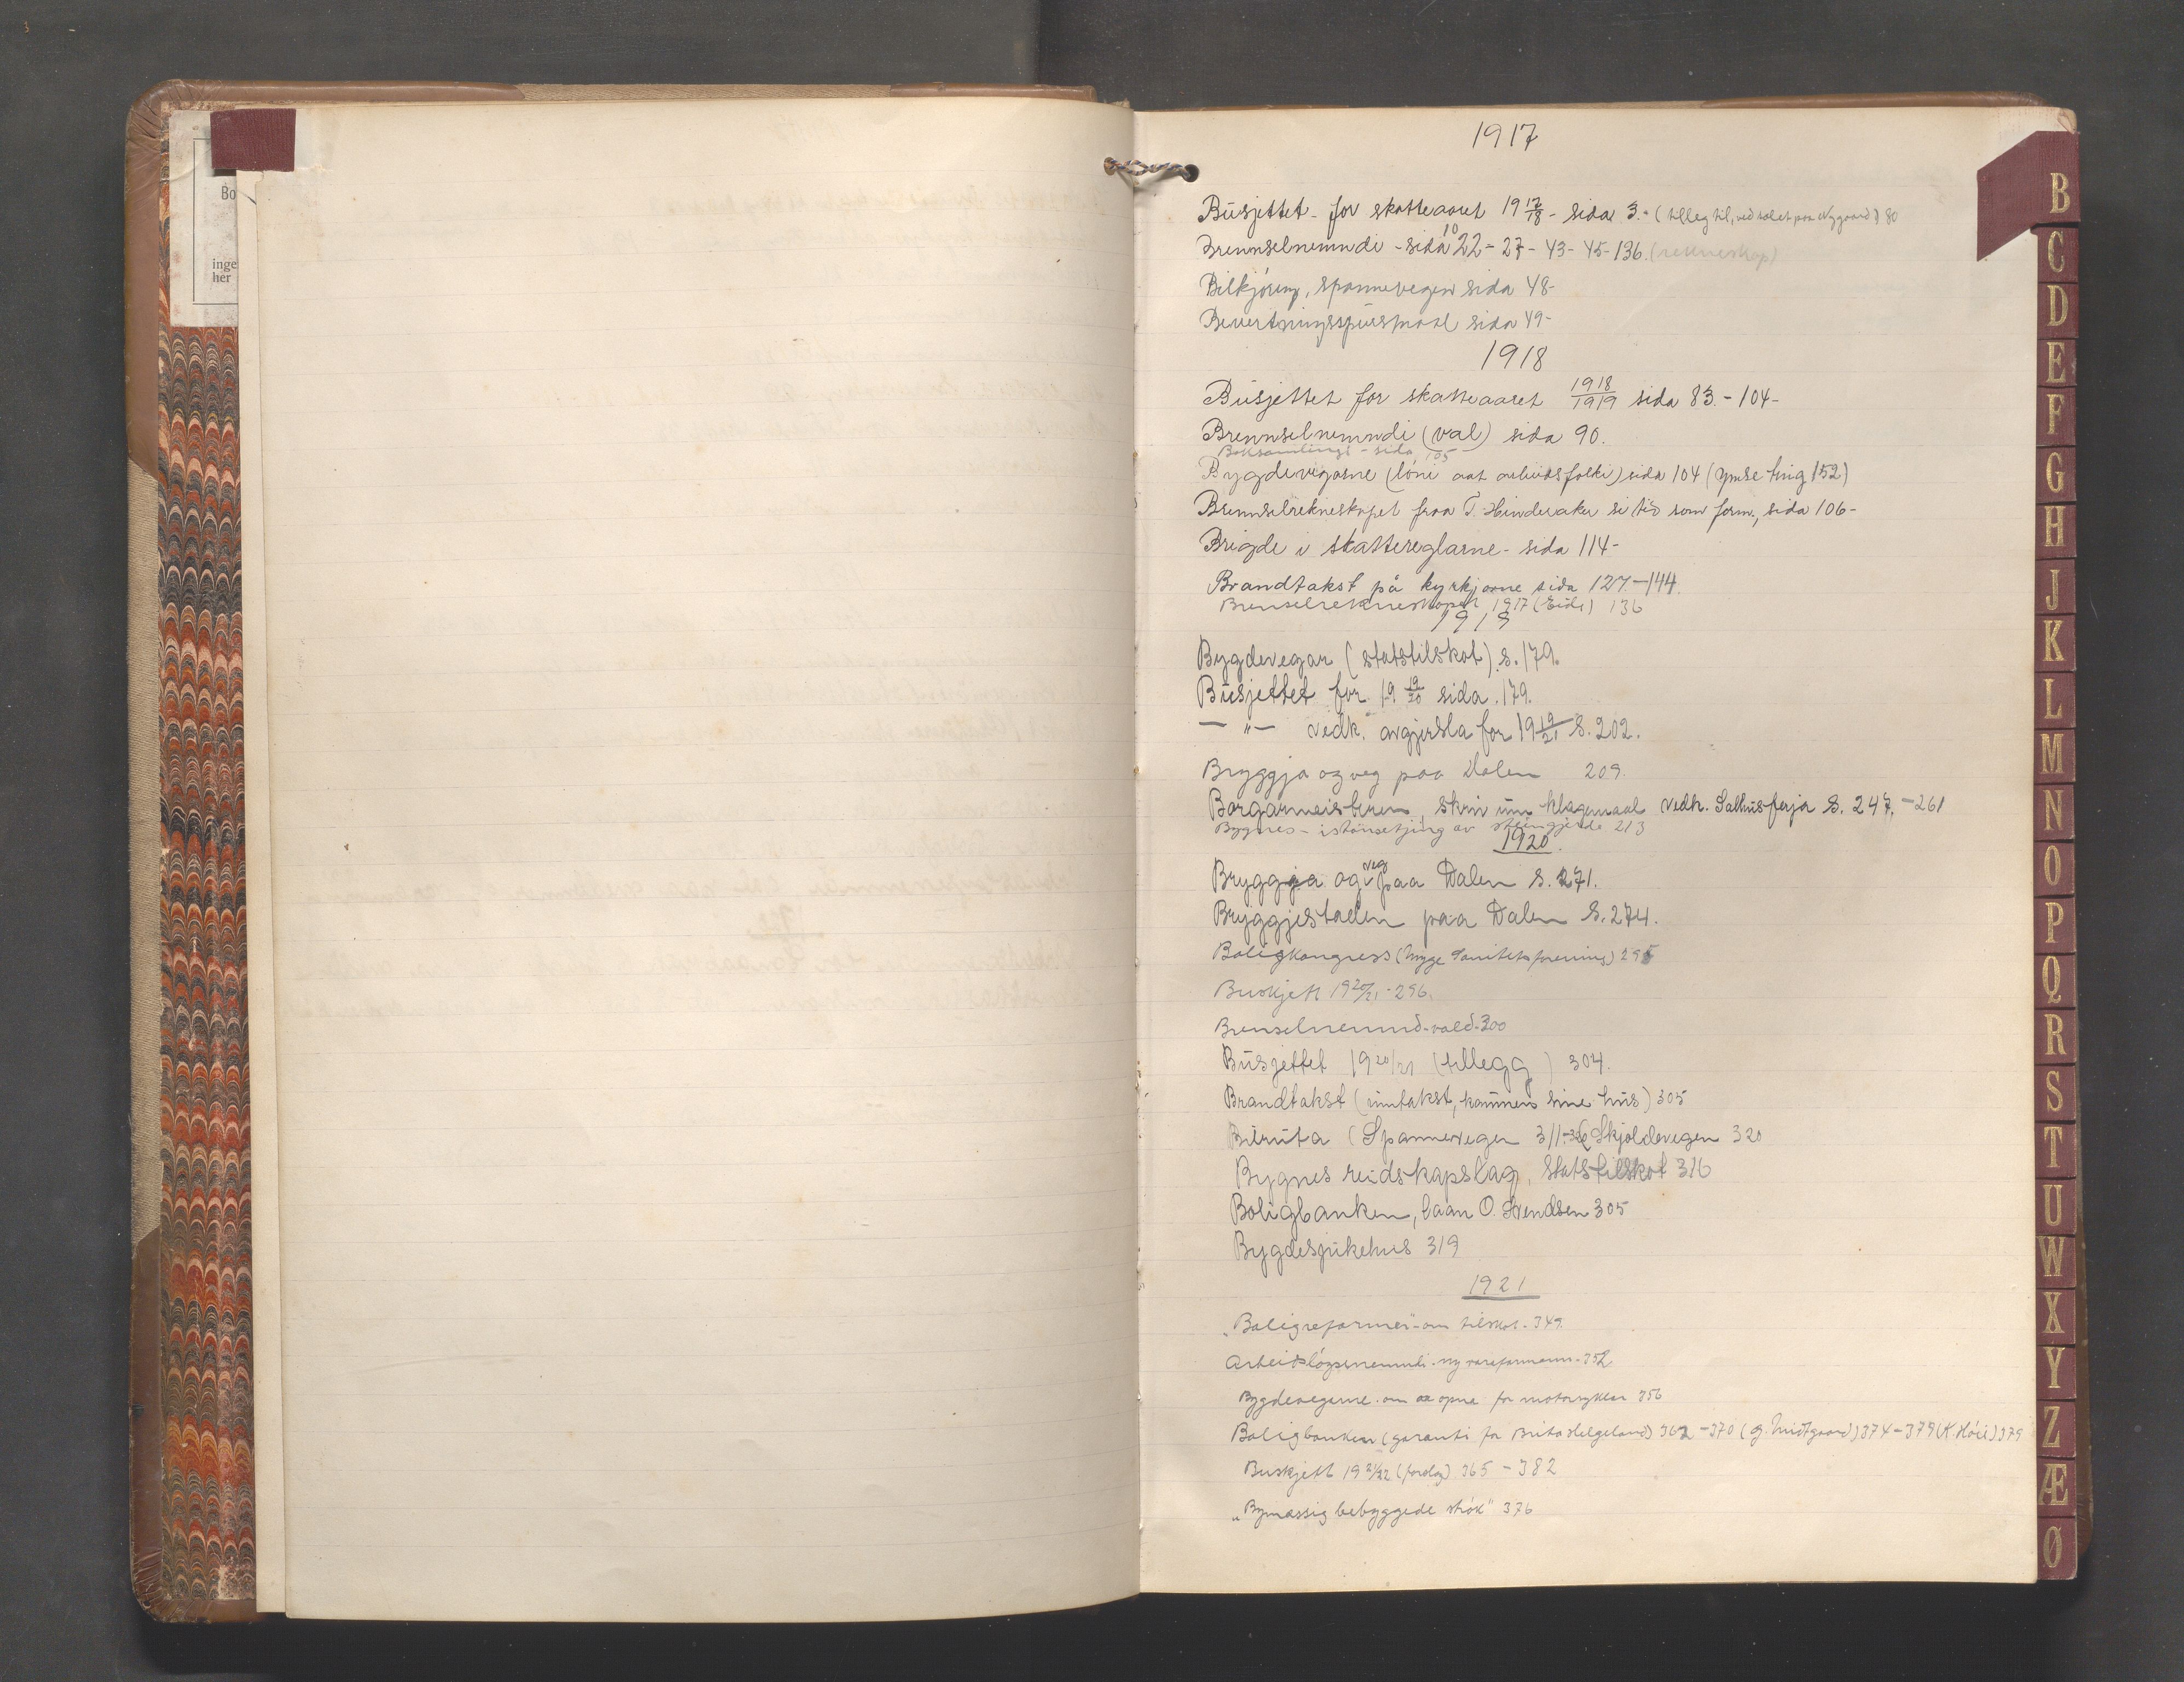 Bo
inge
her
1917
Büsjettet - for skatteaaret 19 17/18 - sida 3. - (tilleg til, ved valet paa Nygaard) 80
Brennselnemndi - sida 10 22 - 27 - 43 - 45 - 136. (rekneskap)
Bilkjöring, spannevegen sida 48-
Bevertningsspürsmaal sida 49-
1918
Büsjettet for skatteaaret 1918/1919 sida 83. - 104-
Brennselnemndi (val) sida 90.
Boksamlingi - sida 105
Bygdevegarne (löni aat arbeidsfolki) sida 104 (ymse ting 152)
Brennselrekneskapet fraa T. Hinderaker si tid som form., sida 106-
Brigde i skattereglarne - sida 114-
Brandtakst på kyrkjorne sida 127.-144.
Brenselrekneskapet 1917 (Eide) 136
1919
Bygdevegar (statstilskot) s. 179.
Büsjettet for 19 19/20 sida. 179.
— " — vedk. avgjersla for 19 19/21 S. 202.
Bryggja og veg paa Dalen 209.
Borgarmeisteren, skriv üm klagemaal vedk. Salhüsferja S. 247. - 261
Bygnes - istandsetjing av steingjerde 213
1920.
Bryggja og veg paa Dalen S. 271.
Bryggjestaden paa Dalen S. 274.
Boligkongress (Norges Sanitetsforening) 295
Buskjett 19 20/21 - 296.
Brenselnemnd - vald - 300
Büsjettet 19 20/21 (tillegg) 304.
Brandtakst (umtakst, kommuns sine hüs) 305
Bilruta (Spannevegen 311-320 (Skjoldevegen 320
Bygnes reidskapslag, Statstilskot 316
Boligbanken, laan O. Svendsen 305
Bygdesjukehus 319
1921
"Boligreformer" - om tilskot - 349.
Arbeidslöysenemndi - ny varaformann - 352
Bygdevegarne - om aa opna for motorsyklar 356
Boligbanken (garanti for Brita Helgeland) 362 - 370 (G. Midtgaard) 374 - 379 (K. Höie) 379
Buskjett 19 21/22 (forslag) 365 - 382
"Bymæssig bebyggede strök" 376
B
C
D
E
F
G
H
J
K
L
M
N
O
P
Q
R
S
T
U
W
X
Y
Z
Æ
Ø